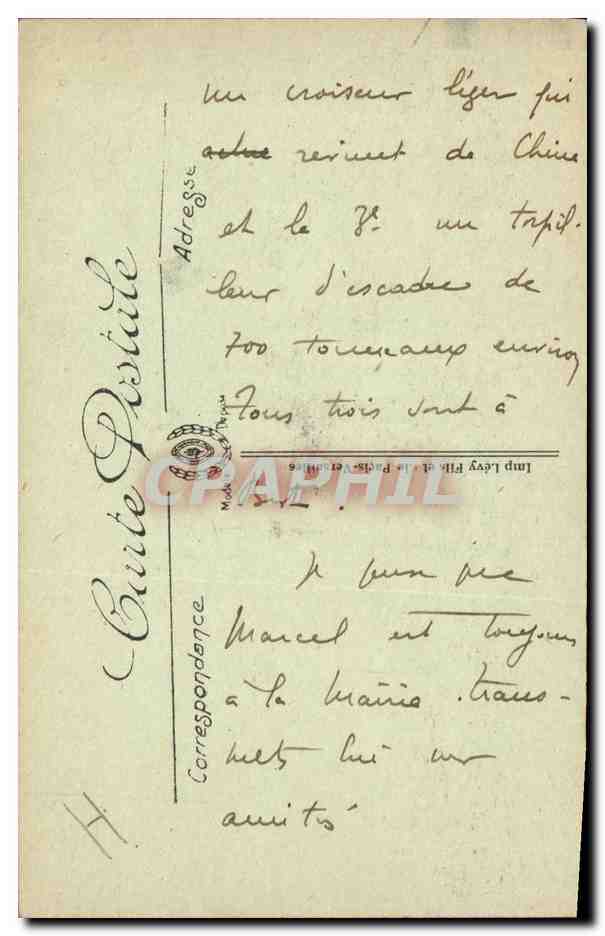 un croiseur léger qui
actue revient de Chine
et le 3e un torpil-
leur d'escadre de
700 tonneaux environ
Tous trois sont à
Brest.
Je pense que
Marcel est toujours
à la Mairie. trans-
mets lui mes
amitiés
Carte Postale
Adresse
Correspondance
Imp Lévy Fils et Cie Paris-Versailles
CPAPHIL
H